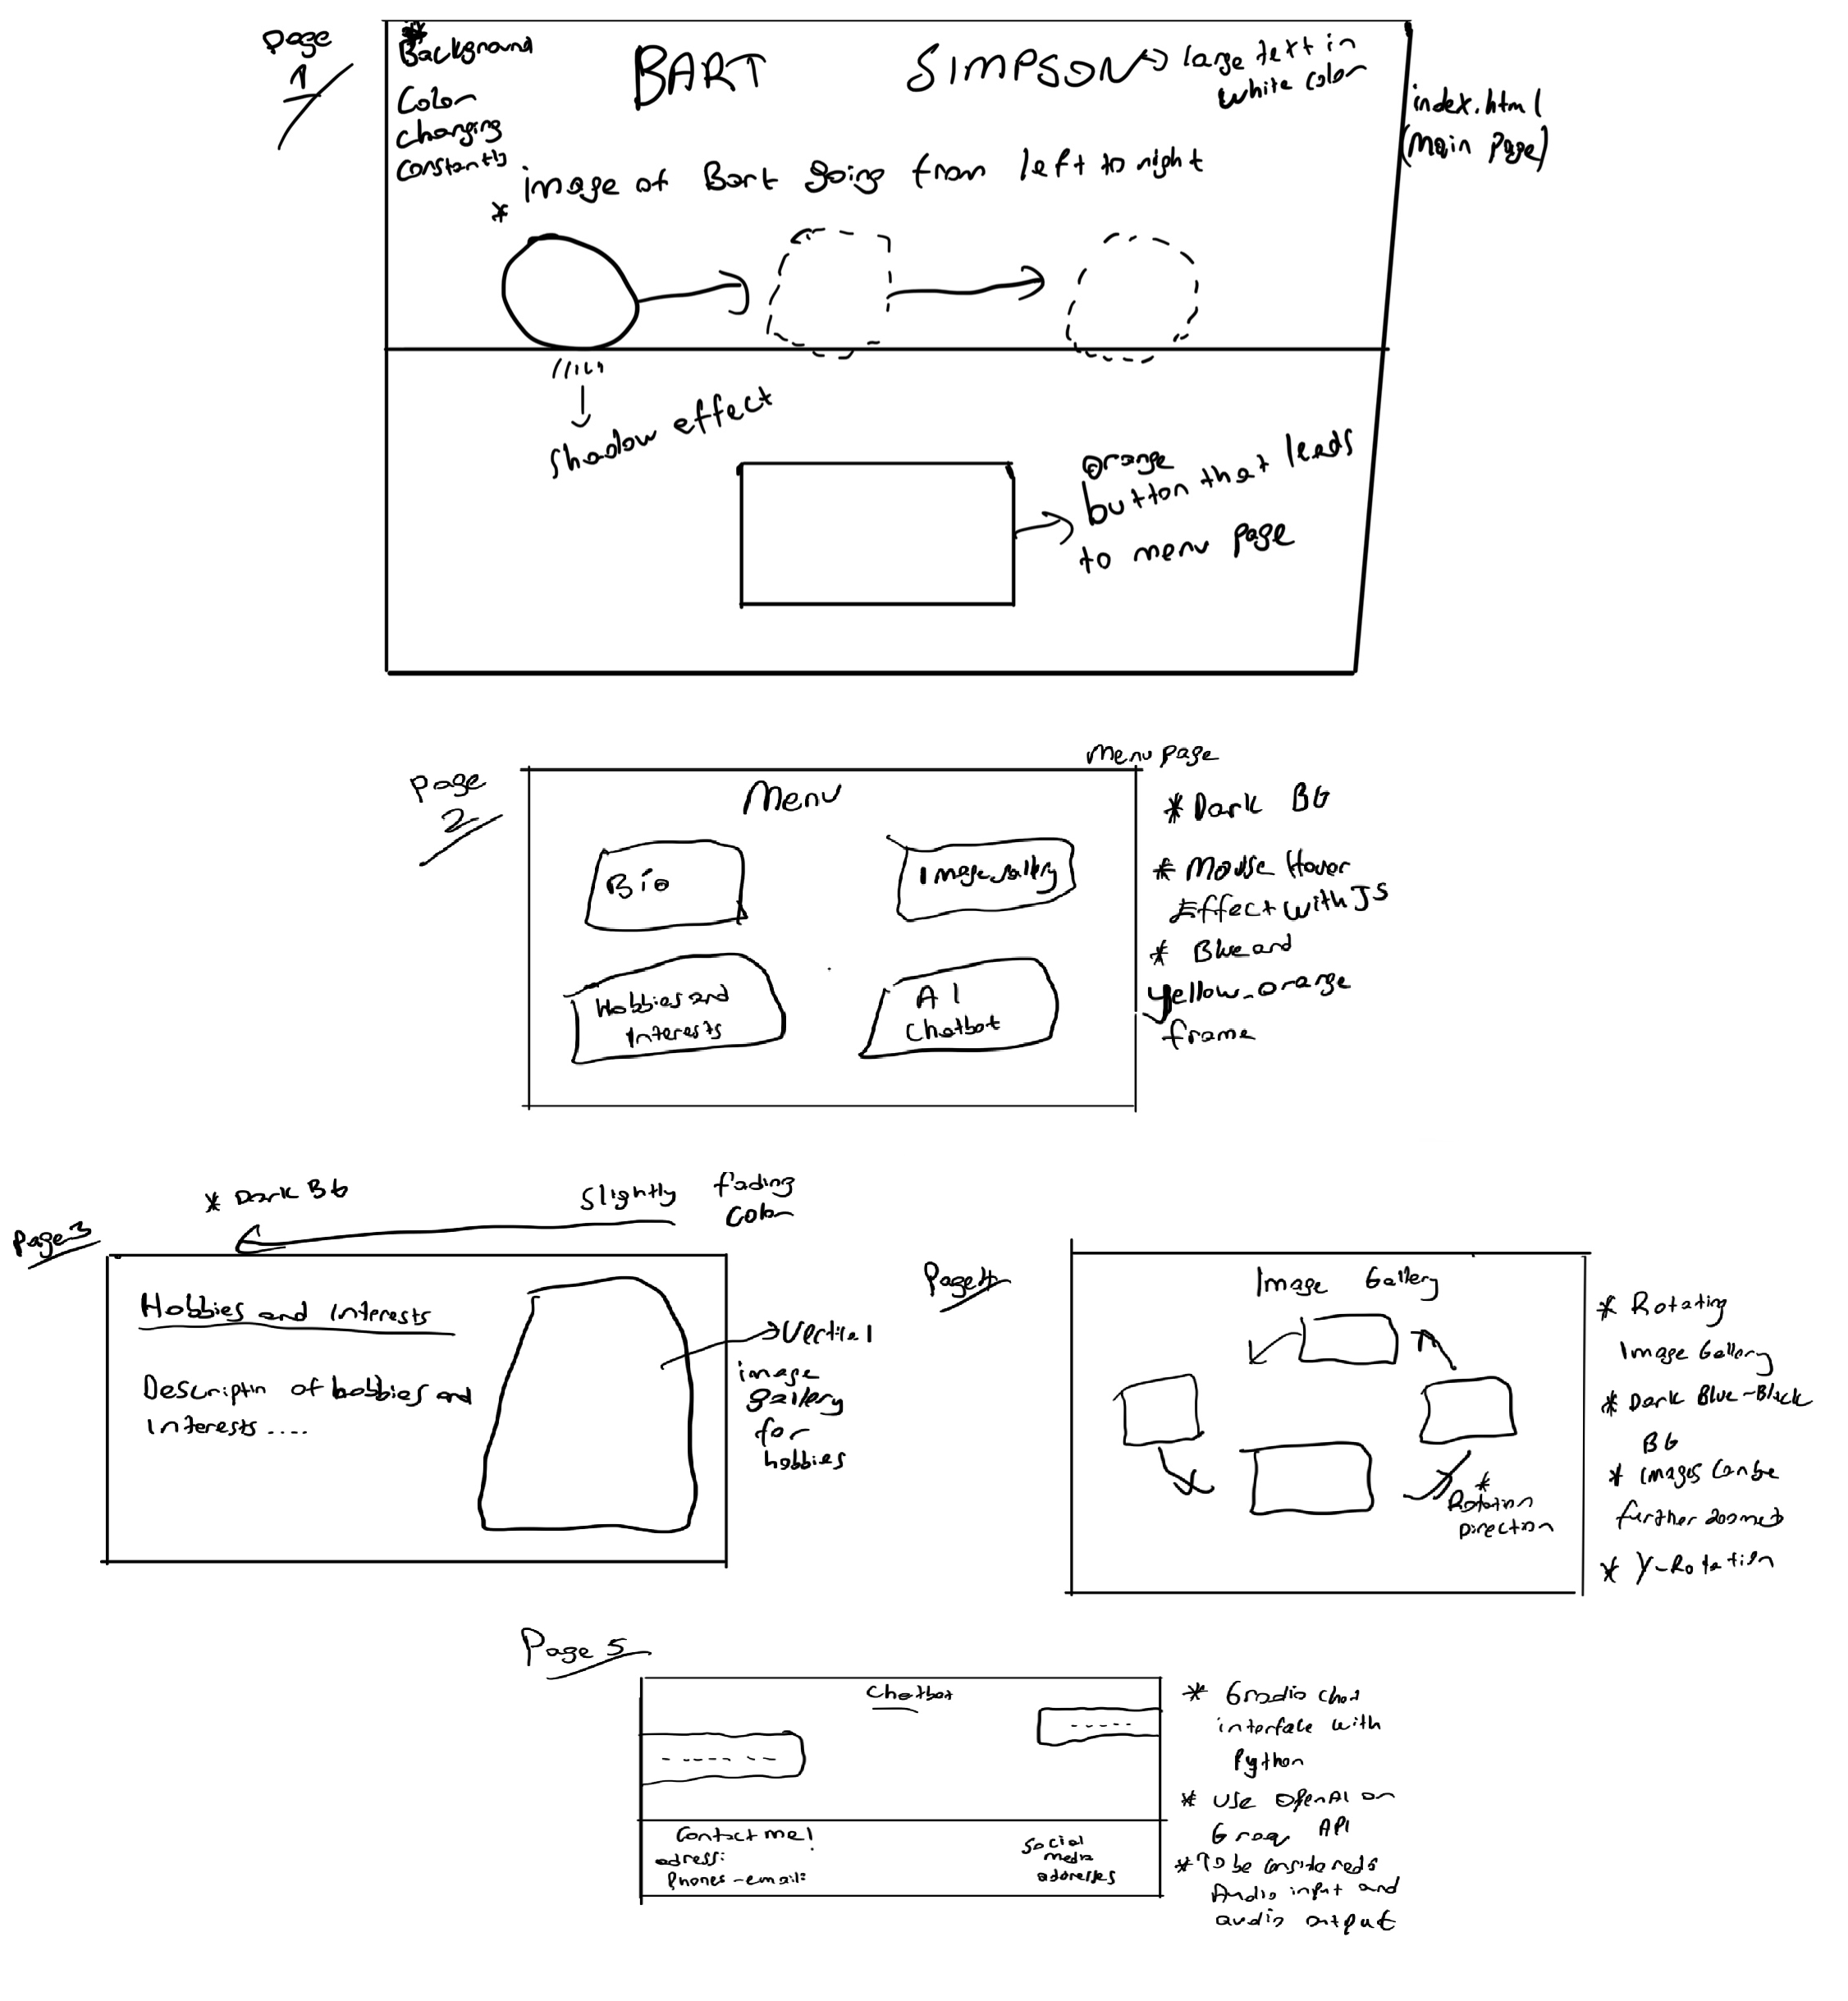 Page
1
*
Background
Color
changing
constantly
BART SIMPSON
large text in
white color
index.html
(Main Page)
* image of Bart going from left to right
shadow effect
orange
button that leads
to menu page
Page
2
Menu Page
Menu
Bio
Image Gallery
Hobbies and
Interests
AI
Chatbot
* Dark BG
* Mouse Hover
Effect with JS
* Blue and
yellow-orange
frame
Page 3
* Dark BG
Slightly fading
color
Hobbies and Interests
Descriptin of hobbies and
Interests ....
Vertical
image
gallery
for
hobbies
Page 4
Image Gallery
*
Rotation
Direction
* Rotating
Image Gallery
* Dark Blue-Black
BG
* Images can be
further zoomed
* Y-Rotation
Page 5
Chatbot
Contact me!
adress:
Phones-email:
Social
media
addresses
* Gradio chat
interface with
Python
* Use OpenAI or
Groq API
* To be considered
Audio input and
audio output